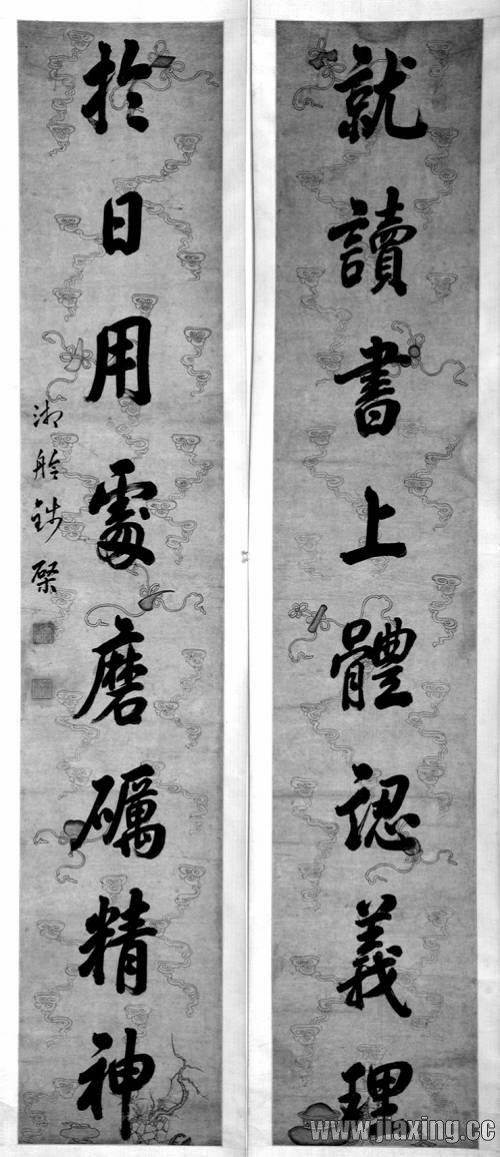 就讀書上體認義理
於日用處磨礪精神
湘舲錢棨
www.jiaxing.cc